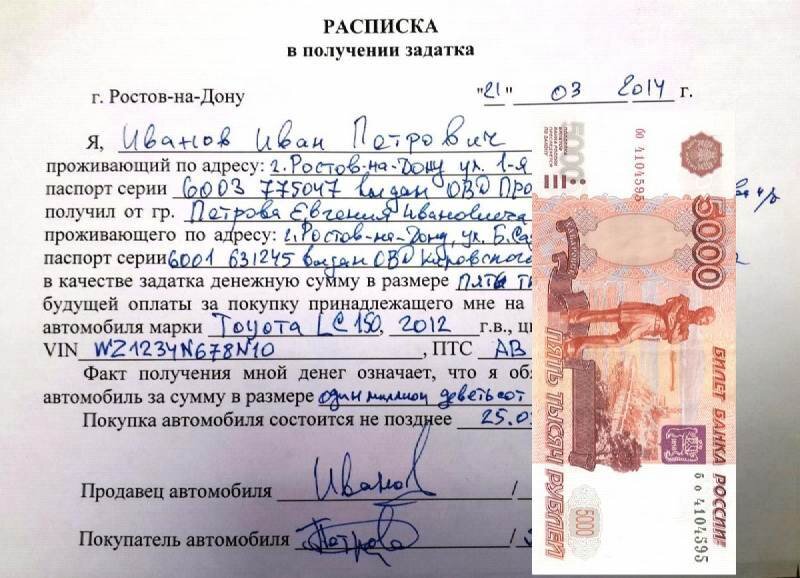 РАСПИСКА
в получении задатка
г. Ростов-на-Дону "21" 03 2014 г.
Я, Иванов Иван Петрович
проживающий по адресу: г. Ростов-на-Дону ул. 1-я
паспорт серии 6003 775047 выдан ОВД ПРО
получил от гр. Петрова Евгения Ивановича
проживающего по адресу: г. Ростов-на-Дону, ул. Б. Сад
паспорт серии 6001 631245 выдан ОВД Кировского
в качестве задатка денежную сумму в размере пять т
будущей оплаты за покупку принадлежащего мне на
автомобиля марки Toyota LC 150, 2012 г.в., ц
VIN WZ1234N678N10, ПТС АВ
Факт получения мной денег означает, что я об
автомобиль за сумму в размере один миллион деветьсот
Покупка автомобиля состоится не позднее 25.0
Продавец автомобиля Иванов /
Покупатель автомобиля Петров /
5000
бо 4104595
5000
БИЛЕТ БАНКА РОССИИ
ПЯТЬ ТЫСЯЧ РУБЛЕЙ
5000
бо 4104595